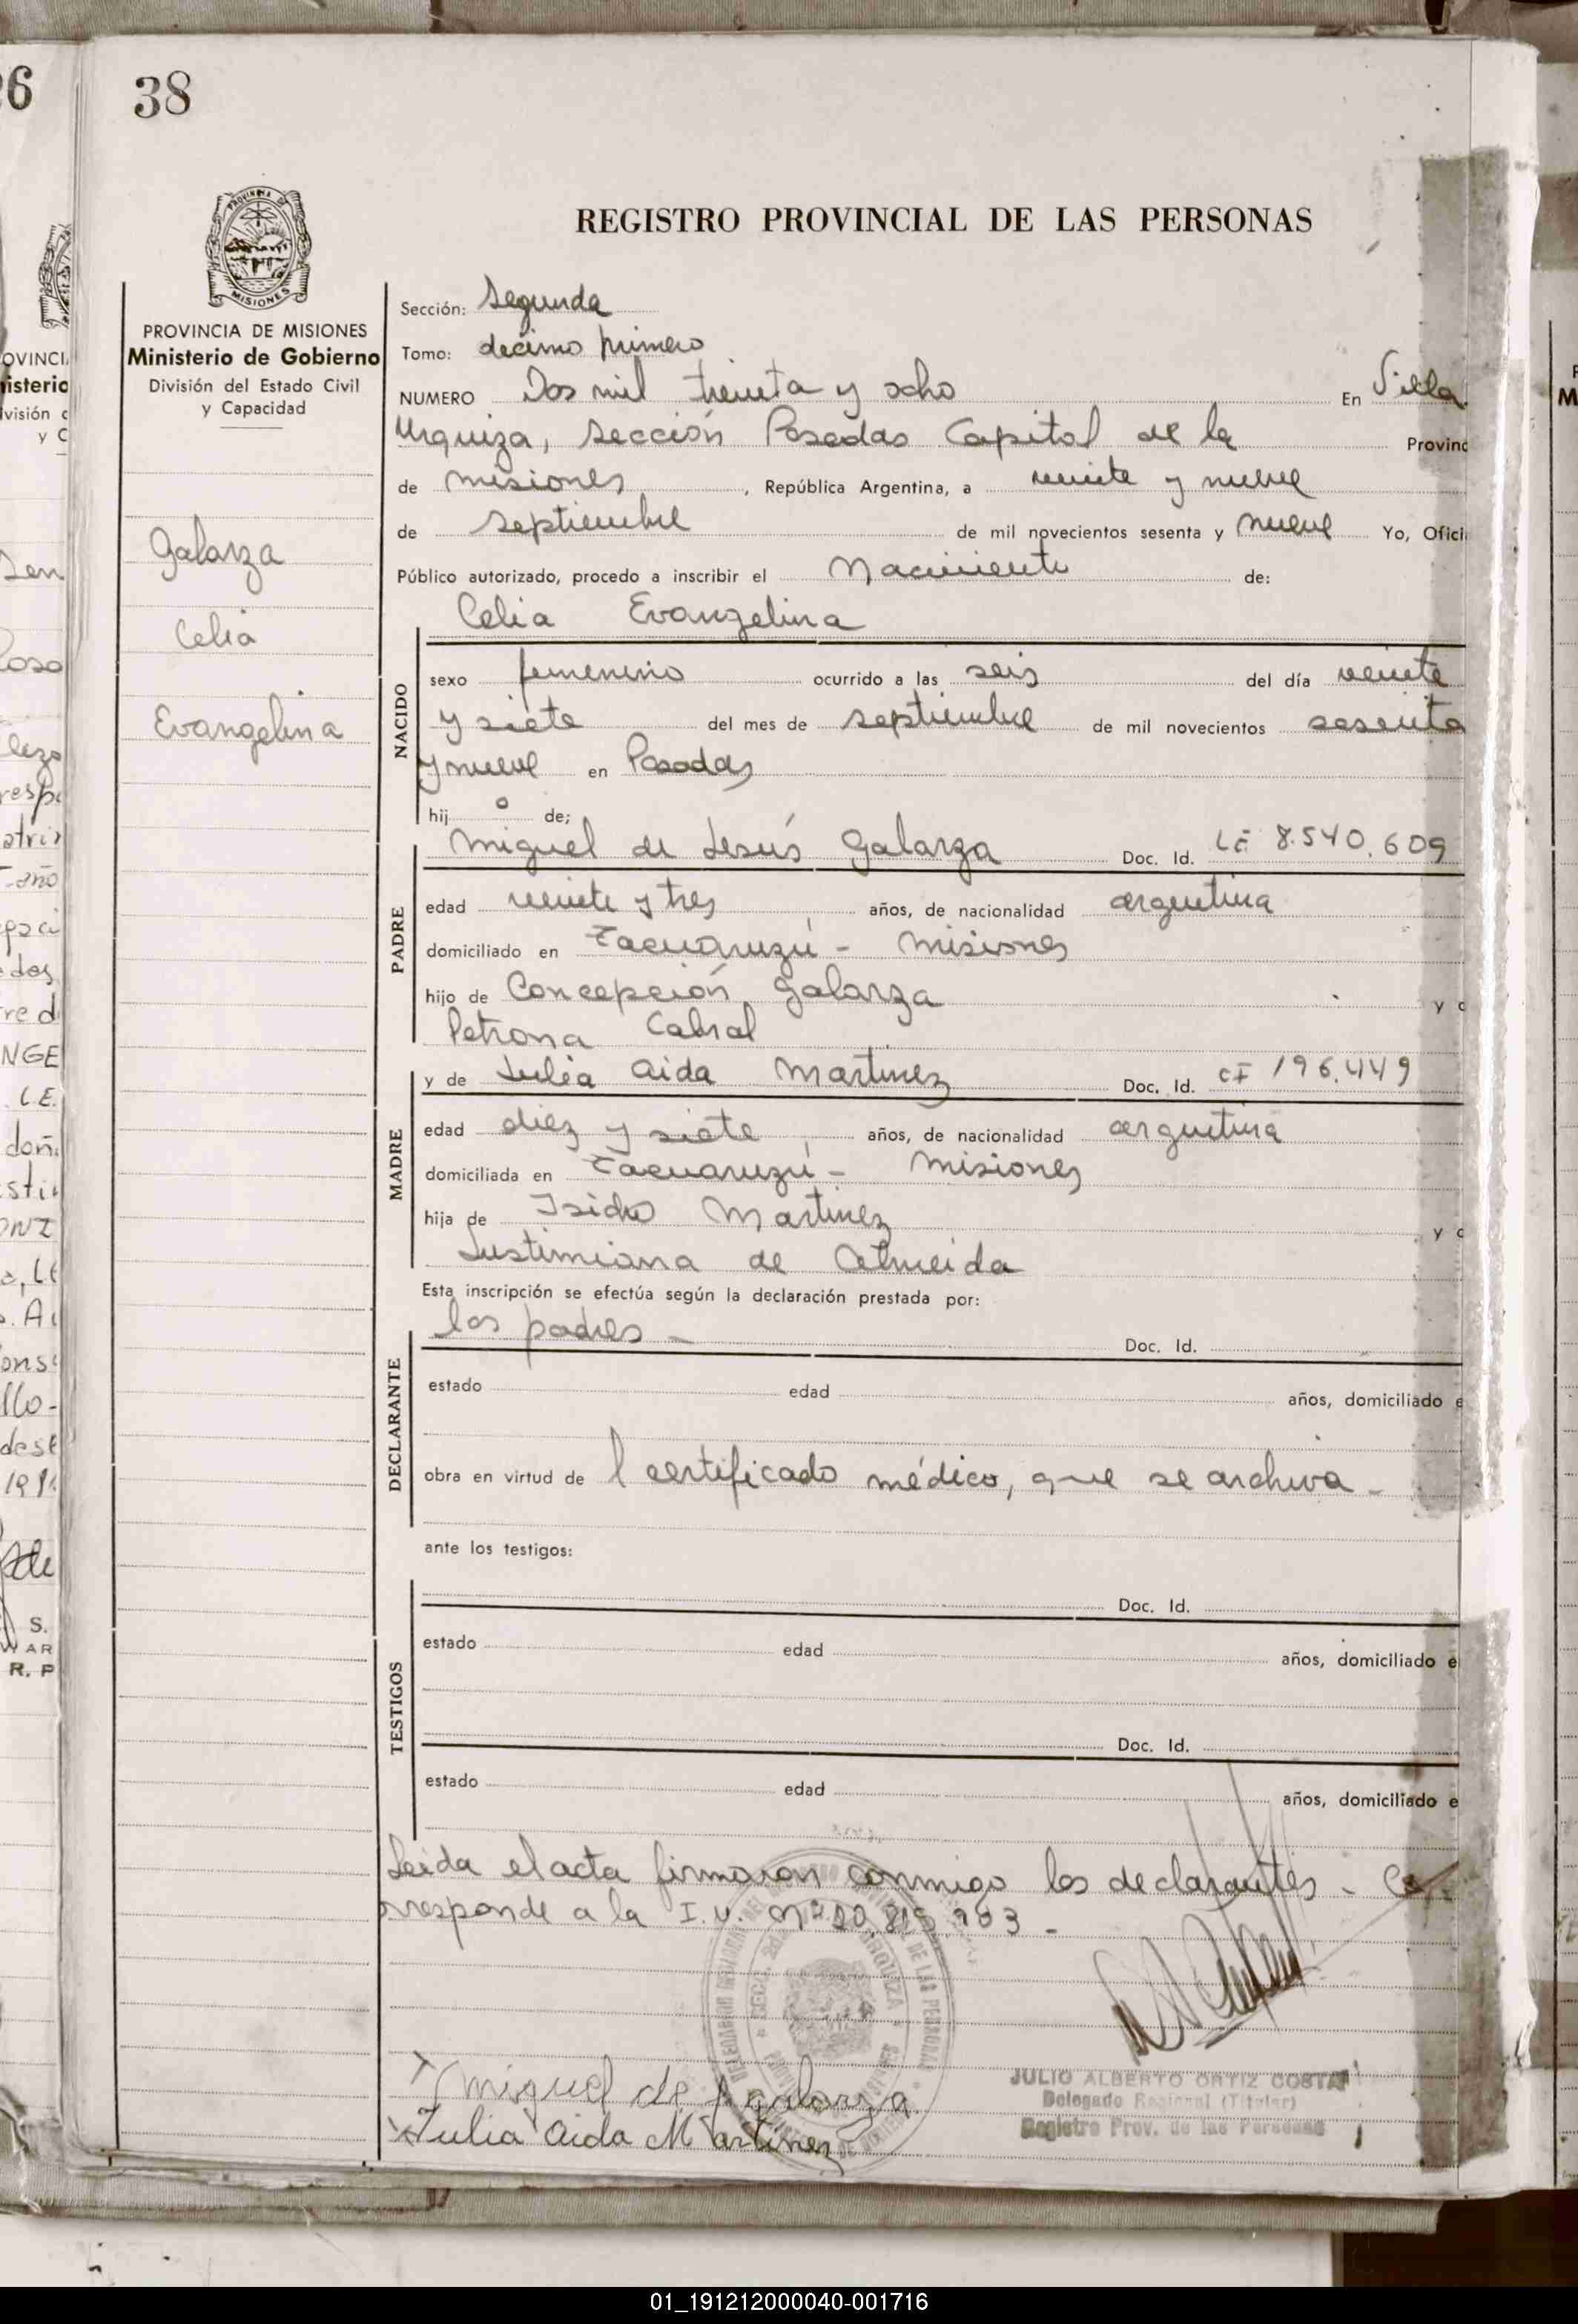 38
REGISTRO PROVINCIAL DE LAS PERSONAS
PROVINCIA DE MISIONES
Ministerio de Gobierno
División del Estado Civil
y Capacidad
Galarza
Celia
Evangelina
Sección: Segunda
Tomo: decimo primero
NUMERO Dos mil treinta y ocho En Villa
Urquiza, Sección Posadas Capital de la Provinc
de misiones, República Argentina, a veinte y nueve
de septiembre de mil novecientos sesenta y nueve Yo, Ofici
Público autorizado, procedo a inscribir el Nacimiento de:
Celia Evangelina
NACIDO
sexo femenino ocurrido a las seis del día veinte
y siete del mes de septiembre de mil novecientos sesenta
y nueve en Posadas
hij o de;
Miguel de Jesús Galarza Doc. Id. LE 8.540.609
PADRE
edad veinte y tres, años, de nacionalidad argentina
domiciliado en Tacuaruzú - Misiones
hijo de Concepción Galarza y d
Petrona Cabral
y de Julia Aida Martinez Doc. Id. CI 196.449
MADRE
edad diez y siete, años, de nacionalidad argentina
domiciliada en Tacuaruzú - Misiones
hija de Isidro Martinez y d
Justimiana de Almeida
Esta inscripción se efectúa según la declaración prestada por:
los padres - Doc. Id.
DECLARANTE
estado edad años, domiciliado e
obra en virtud de l certificado médico, que se archiva -
ante los testigos:
Doc. Id.
TESTIGOS
estado edad años, domiciliado e
Doc. Id.
estado edad años, domiciliado e
Leida el acta firmaron conmigo los declarantes - Co
rresponde a la I.U. Nº 20.815.983 -
Miguel de J galarza
Julia Aida Martinez
JULIO ALBERTO ORTIZ COSTA
Delegado Regional (Titular)
Registro Prov. de las Personas
01_191212000040-001716